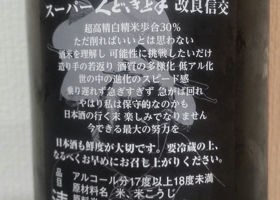 スーパーくどき上手 改良信交
超高精白精米歩合30%
ただ削ればいいとは思わない
酒米を理解し 可能性に挑戦したいだけ
造り手の若返り 酒質の多様化 低アル化
世の中の進化のスピード感
乗り遅れず 急ぎすぎず 急がば回れ
やはり私は保守的なのかも
日本酒の行く末 楽しみでなりません
今できる最大の努力を
日本酒も鮮度が大切です。要冷蔵の上、
なるべくお早めにお召し上がりください。
品目
アルコール分17度以上18度未満
原材料名 米、米こうじ
清